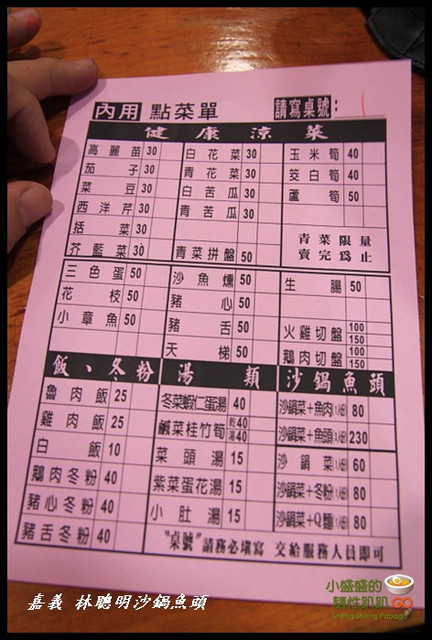 內用 點菜單 請寫桌號:
健康涼菜
高麗苗 30 白花菜 30 玉米筍 40
茄子 30 青花菜 30 茭白筍 40
菜豆 30 白苦瓜 30 蘆筍 50
西洋芹 30 青苦瓜 30
括菜 30 青菜限量
芥藍菜 30 青菜拼盤 50 賣完為止
三色蛋 50 沙魚燻 50 生腸 50
花枝 50 豬心 50
小章魚 50 豬舌 50 火雞切盤 100 150
天梯 50 鵝肉切盤 100 150
飯、冬粉 湯類 沙鍋魚頭
魯肉飯 25 冬菜蝦仁蛋湯 40 沙鍋菜+魚肉(1份) 80
雞肉飯 25 鹹菜桂竹筍 乾40 湯40 沙鍋菜+魚頭(1份) 230
白飯 10 菜頭湯 15 沙鍋菜(1份) 60
鵝肉冬粉 40 紫菜蛋花湯 15 沙鍋菜+冬粉(1份) 80
豬心冬粉 40 小肚湯 15 沙鍋菜+Q麵(1份) 80
豬舌冬粉 40 "桌號"請務必填寫 交給服務人員即可
嘉義 林聰明沙鍋魚頭
小盛盛的
隨性趴趴GO
Sheng Sheng Papago